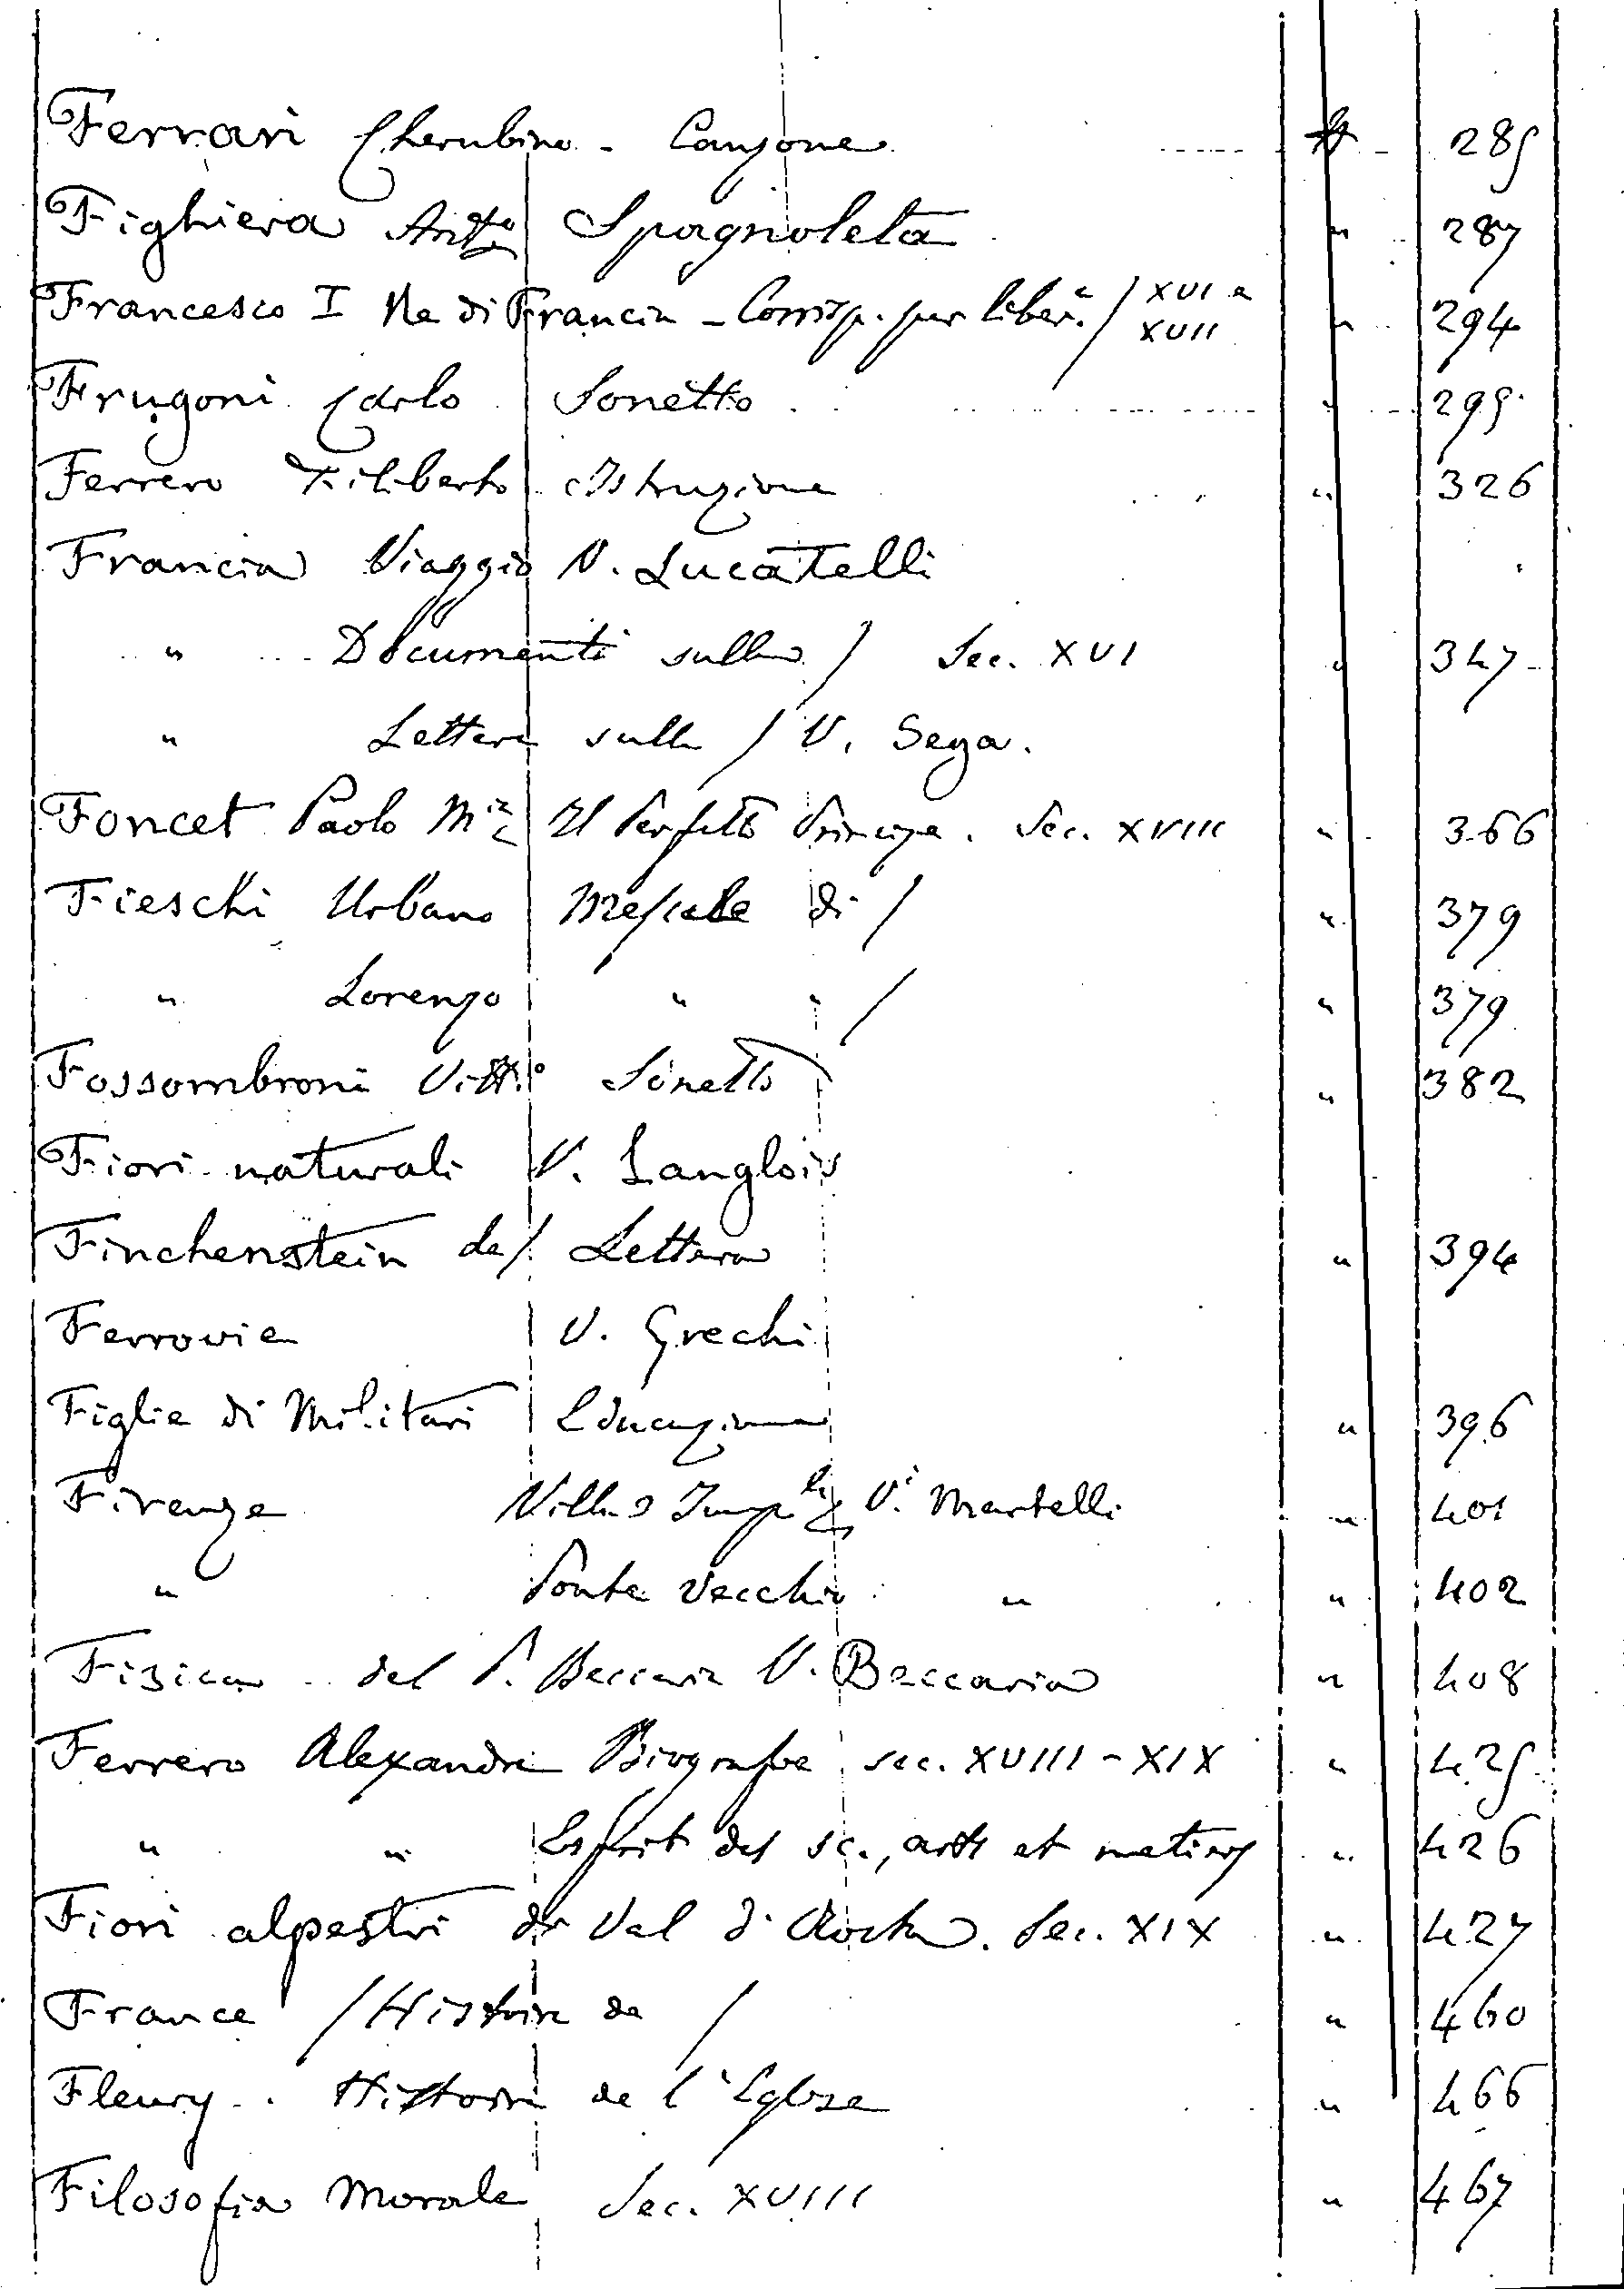 Ferrari Cherubino - Canzone 285
Fighiera Ant.o Spagnoleta " 287
Francesco I Re di Francia - Corrisp. per liber.e / XVI e XVII " 294
Frugoni Carlo Sonetto " 295
Ferrero Filiberto Istruzione " 326
Francia Viaggio V. Lucatelli
" Documenti sulla / Sec. XVI " 347
" Lettere sulla / V. Sega.
Foncet Paolo M.a Il Perfetto Principe. Sec. XVIII " 366
Fieschi Urbano Messale di / " 379
" Lorenzo " " / " 379
Fossombroni Vitt.o Sonetto " 382
Fiori naturali V. Langlois
Finchenstein de / Lettera " 394
Ferrovie V. Grechi
Figlie di Militari Educazione " 396
Firenze Villa Imp.le V. Martelli " 401
" Ponte Vecchio " " 402
Fisica del P. Beccaria V. Beccaria " 408
Ferrero Alexandre Biografie sec. XVIII - XIX " 425
" " Esprit des sc., arts et metiers " 426
Fiori alpestri di Val d'Aosta. Sec. XIX " 427
France / Histoire de / " 460
Fleury. Histoire de l'Eglise " 466
Filosofia Morale Sec. XVIII " 467